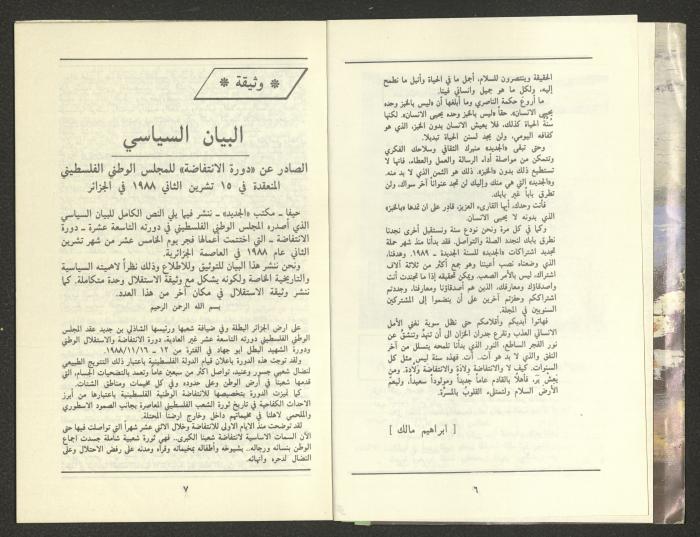 الحقيقة وينتصرون للسلام، أجمل ما في الحياة وأنبل ما نطمح
إليه، ولكل ما هو جميل وانساني فينا.
ما أروع حكمة الناصري وما أبلغها أن «ليس بالخبز وحده
يحيى الانسان». حقاً «ليس بالخبز وحده يحيى الانسان». لكنها
سُنّة الحياة كذلك، فلا يعيش الانسان بدون الخبز، الذي هو
كفافه اليومي، ولن يجد لسنن الحياة تبديلا.
وحتى تبقى «الجديد» منبرك الثقافي وسلاحك الفكري
وتتمكن من مواصلة أداء الرسالة والعمل والعطاء، فانها لا
تستطيع ذلك بدون «الخبز». ذلك هو الثمن الذي لا بد منه.
و«الجديد» التي هي منك وإليك لن تجد عنواناً آخر سواك، ولن
تطرق باباً غير بابك.
فأنت وحدك، أيها القارىء العزيز، قادر على ان تمدها «بالخبز»
الذي بدونه لا يحيى الانسان.
وكما في كل مرة ونحن نودع سنة ونستقبل أخرى نجدنا
نطرق بابك لنجدد الصلة والتواصل. فقد بدأنا منذ شهر حملة
تجديد اشتراكات «الجديد» للسنة الجديدة - ١٩٨٩. وهدفنا،
الذي وضعناه نصب أعيننا وهو جمع أكثر من ثلاثة آلاف
اشتراك، ليس بالأمر الصعب. ويمكن تحقيقه إذا ما تجندت أنت
وأصدقاؤك ومعارفك، الذين هم أصدقاؤنا ومعارفنا، وجددتم
اشتراككم وحفزتم آخرين على أن ينضموا إلى المشتركين
السنويين في المجلة.
فهاتوا أيديكم وأقلامكم حتى نظل سوية نغني الأمل
الانساني العذب ونقرع جدران الخزان الى أن تنهدّ وتنشق عن
نور الفجر الساطع، النور الذي بدأنا نلمحه يتسلل من آخر
النفق والذي لا بد هو آت.. آت. فهذه سنة ليس مثل كل
السنوات. كيف لا والانتفاضة ولاّدة والانتفاضة ولاّدة. ومن
يعش يرَ، فأهلاً بالقادم عاماً جديداً ومولوداً سعيداً، وليعمّ
الأرض السلام ولتمتلىء القلوب بالمسرّة.
[ ابراهيم مالك ]
٦
* وثيقة *
البيان السياسي
الصادر عن «دورة الانتفاضة» للمجلس الوطني الفلسطيني
المنعقدة في ١٥ تشرين الثاني ١٩٨٨ في الجزائر
حيفا - مكتب «الجديد» - ننشر فيما يلي النص الكامل للبيان السياسي
الذي أصدره المجلس الوطني الفلسطيني في دورته التاسعة عشرة - دورة
الانتفاضة - التي اختتمت أعمالها فجر يوم الخامس عشر من شهر تشرين
الثاني عام ١٩٨٨ في العاصمة الجزائرية.
ونحن ننشر هذا البيان للتوثيق وللاطلاع وذلك نظراً لاهميته السياسية
والتاريخية الخاصة ولكونه يشكل مع وثيقة الاستقلال وحدة متكاملة. كما
ننشر وثيقة الاستقلال في مكان آخر من هذا العدد.
بسم الله الرحمن الرحيم
على ارض الجزائر البطلة وفي ضيافة شعبها ورئيسها الشاذلي بن جديد عقد المجلس
الوطني الفلسطيني دورته التاسعة عشر غير العادية، دورة الانتفاضة والاستقلال الوطني
ودورة الشهيد البطل ابو جهاد في الفترة من ١٢ - ١٩٨٨/١١/١٦.
ولقد توجت هذه الدورة باعلان قيام الدولة الفلسطينية باعتبار ذلك التتويج الطبيعي
لنضال شعبي جسور وعنيد، تواصل اكثر من سبعين عاماً وتعمد بالتضحيات الجسام، التي
قدمها شعبنا في أرض الوطن وعلى حدوده وفي كل مخيمات ومناطق الشتات.
كما تميزت الدورة بتخصيصها للانتفاضة الوطنية الفلسطينية باعتبارها من أبرز
الاحداث الكفاحية في تاريخ ثورة الشعب الفلسطيني المعاصرة بجانب الصمود الاسطوري
والملحمي لاهلنا في مخيماتهم داخل وخارج ارضنا المحتلة.
لقد توضحت منذ الايام الاولى للانتفاضة وخلال الاثني عشر شهراً التي تواصلت فيها حتى
الآن السمات الاساسية لانتفاضة شعبنا الكبرى.. فهي ثورة شعبية شاملة جسدت اجماع
الوطن بنسائه ورجاله.. بشيوخه وأطفاله بمخيماته وقراه ومدنه على رفض الاحتلال وعلى
النضال لدحره وانهائه.
٧